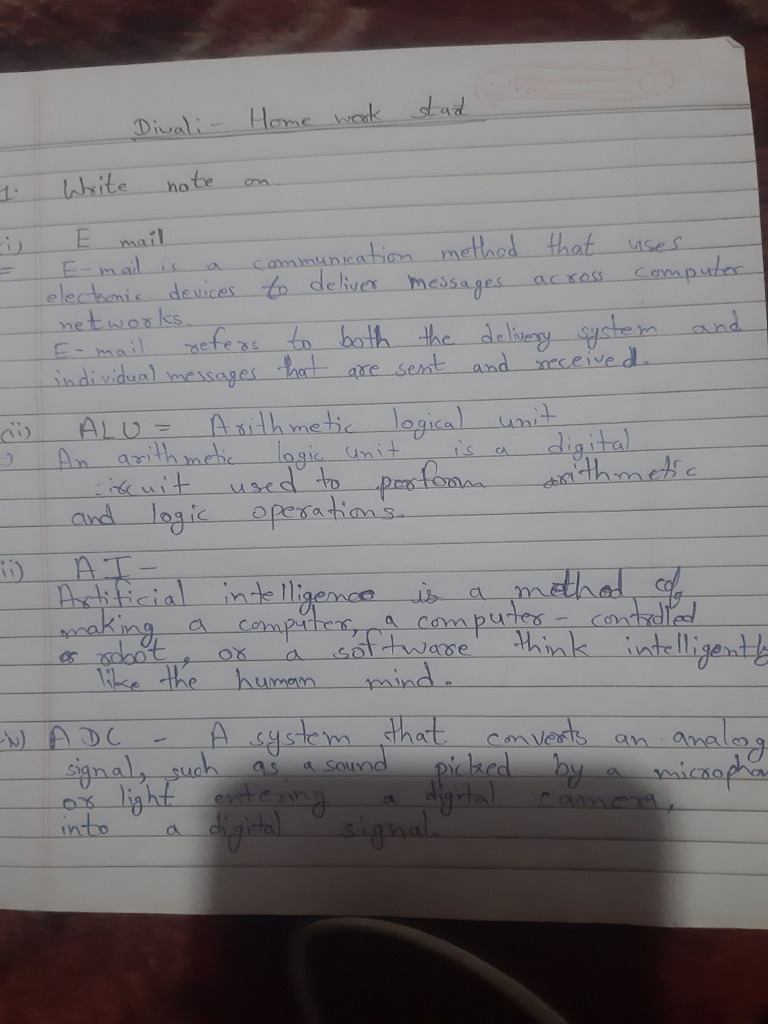 Divali - Home work start
1. Write note on
i) E mail
= E-mail is a communication method that uses
electronic devices to deliver messages across computer
networks.
E-mail refers to both the delivery system and
individual messages that are sent and received.
(ii) ALU = Arithmetic logical unit
An arithmetic logic unit is a digital
circuit used to perform arithmetic
and logic operations.
ii) AI -
Artificial intelligence is a method of
making a computer, a computer - controlled
robot, or a software think intelligently
like the human mind.
iv) ADC - A system that converts an analog
signal, such as a sound picked by a micropho
or light entering a digital camera,
into a digital signal.